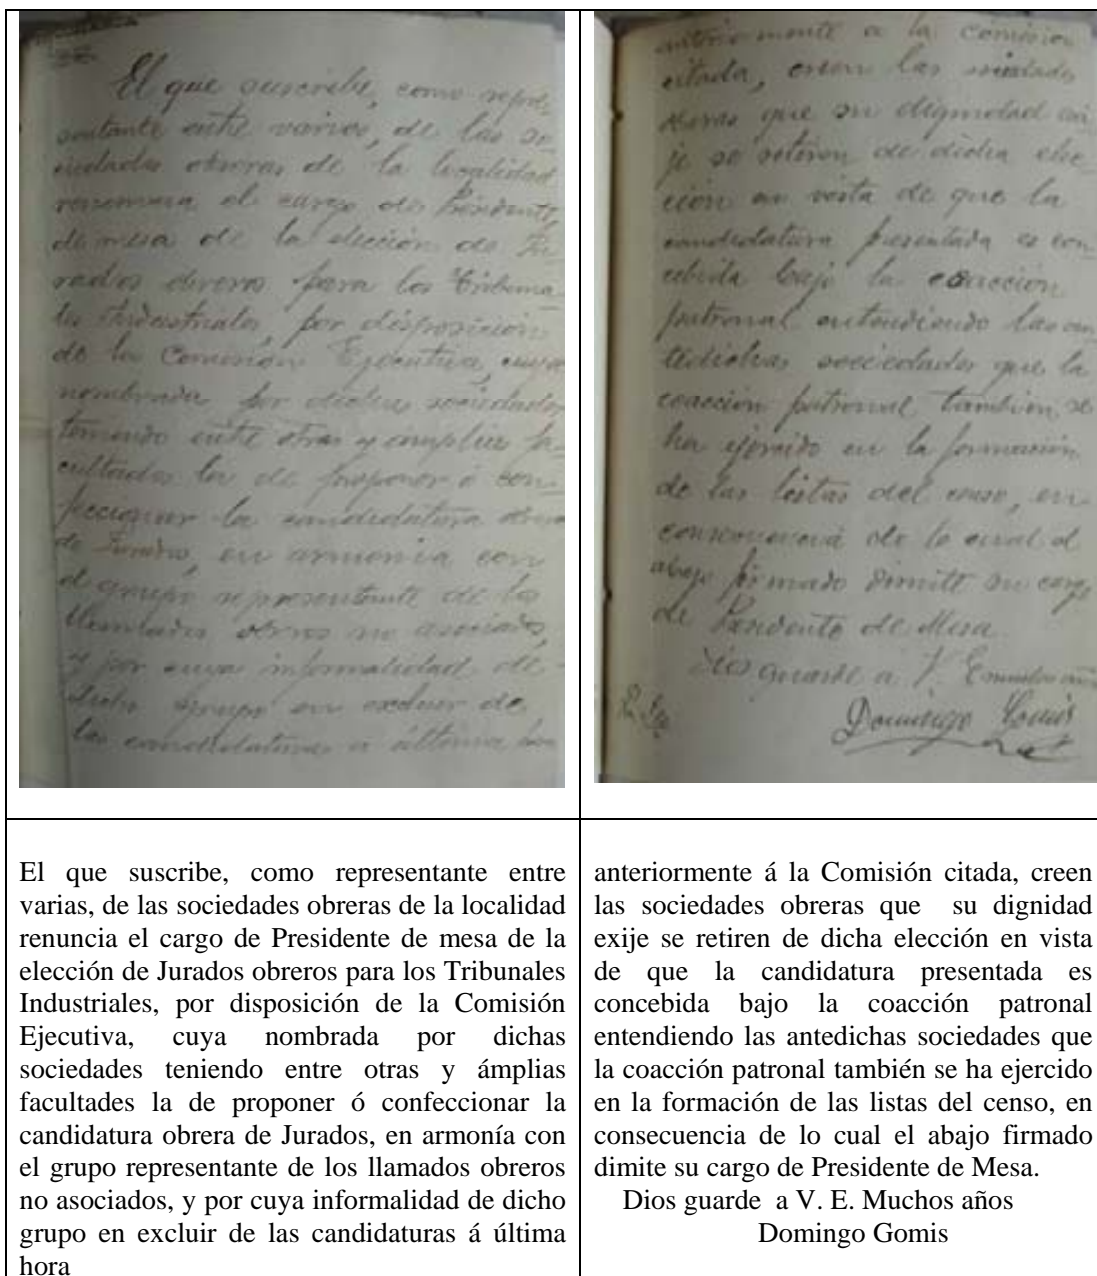 El que suscribe, como repre-
sentante entre varias, de las so-
ciedades obreras de la localidad
renuncia el cargo de Presidente
de mesa de la elección de Ju-
rados obreros para los Tribuna-
les Industriales, por disposición
de la Comisión Ejecutiva, cuya
nombrada por dichas sociedades
teniendo entre otras y amplias fa-
cultades la de proponer ó con-
feccionar la candidatura obrera
de Jurados, en armonia con
el grupo representante de los
llamados obreros no asociados,
y por cuya informalidad de
dicho grupo en excluir de
las candidaturas a última hora
anteriormente a la Comision
citada, creen las sociedades
obreras que su dignidad exi-
je se retiren de dicha elec-
ción en vista de que la
candidatura presentada es con-
cebida bajo la coacción
patronal entendiendo las an-
tedichas sociedades que la
coacción patronal tambien se
ha ejercido en la formación
de las listas del censo, en
consecuencia de lo cual el
abajo firmado dimite su cargo
de Presidente de Mesa.
Dios guarde a V. E. muchos años
Domingo Gomis
El que suscribe, como representante entre
varias, de las sociedades obreras de la localidad
renuncia el cargo de Presidente de mesa de la
elección de Jurados obreros para los Tribunales
Industriales, por disposición de la Comisión
Ejecutiva, cuya nombrada por dichas
sociedades teniendo entre otras y ámplias
facultades la de proponer ó confeccionar la
candidatura obrera de Jurados, en armonía con
el grupo representante de los llamados obreros
no asociados, y por cuya informalidad de dicho
grupo en excluir de las candidaturas á última
hora
anteriormente á la Comisión citada, creen
las sociedades obreras que su dignidad
exije se retiren de dicha elección en vista
de que la candidatura presentada es
concebida bajo la coacción patronal
entendiendo las antedichas sociedades que
la coacción patronal también se ha ejercido
en la formación de las listas del censo, en
consecuencia de lo cual el abajo firmado
dimite su cargo de Presidente de Mesa.
Dios guarde a V. E. Muchos años
Domingo Gomis